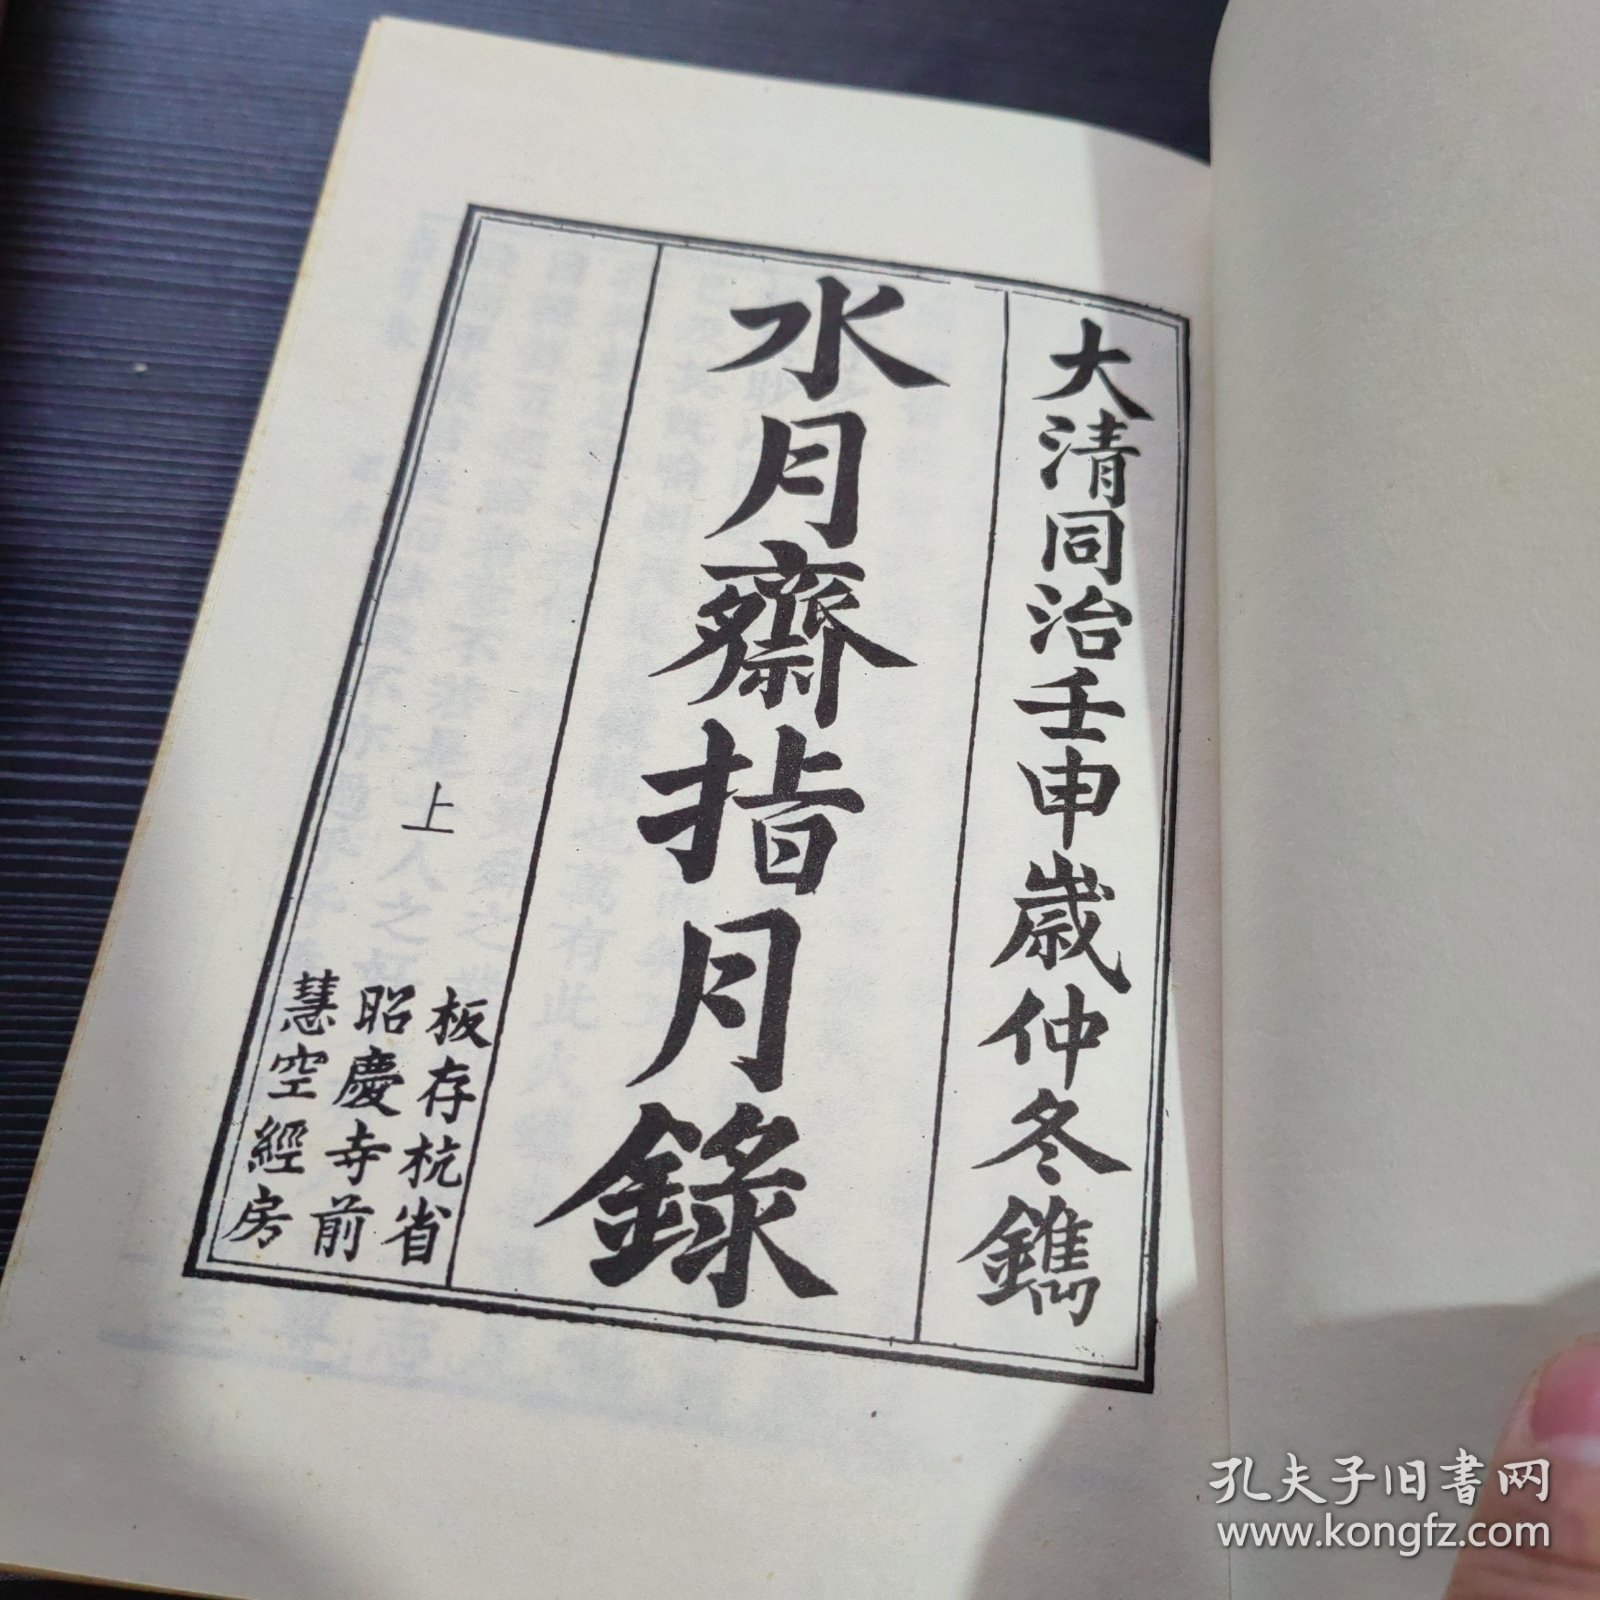 大清同治壬申歲仲冬鐫
水月齋指月錄
上
板存杭省
昭慶寺前
慧空經房
孔夫子旧书网
www.kongfz.com